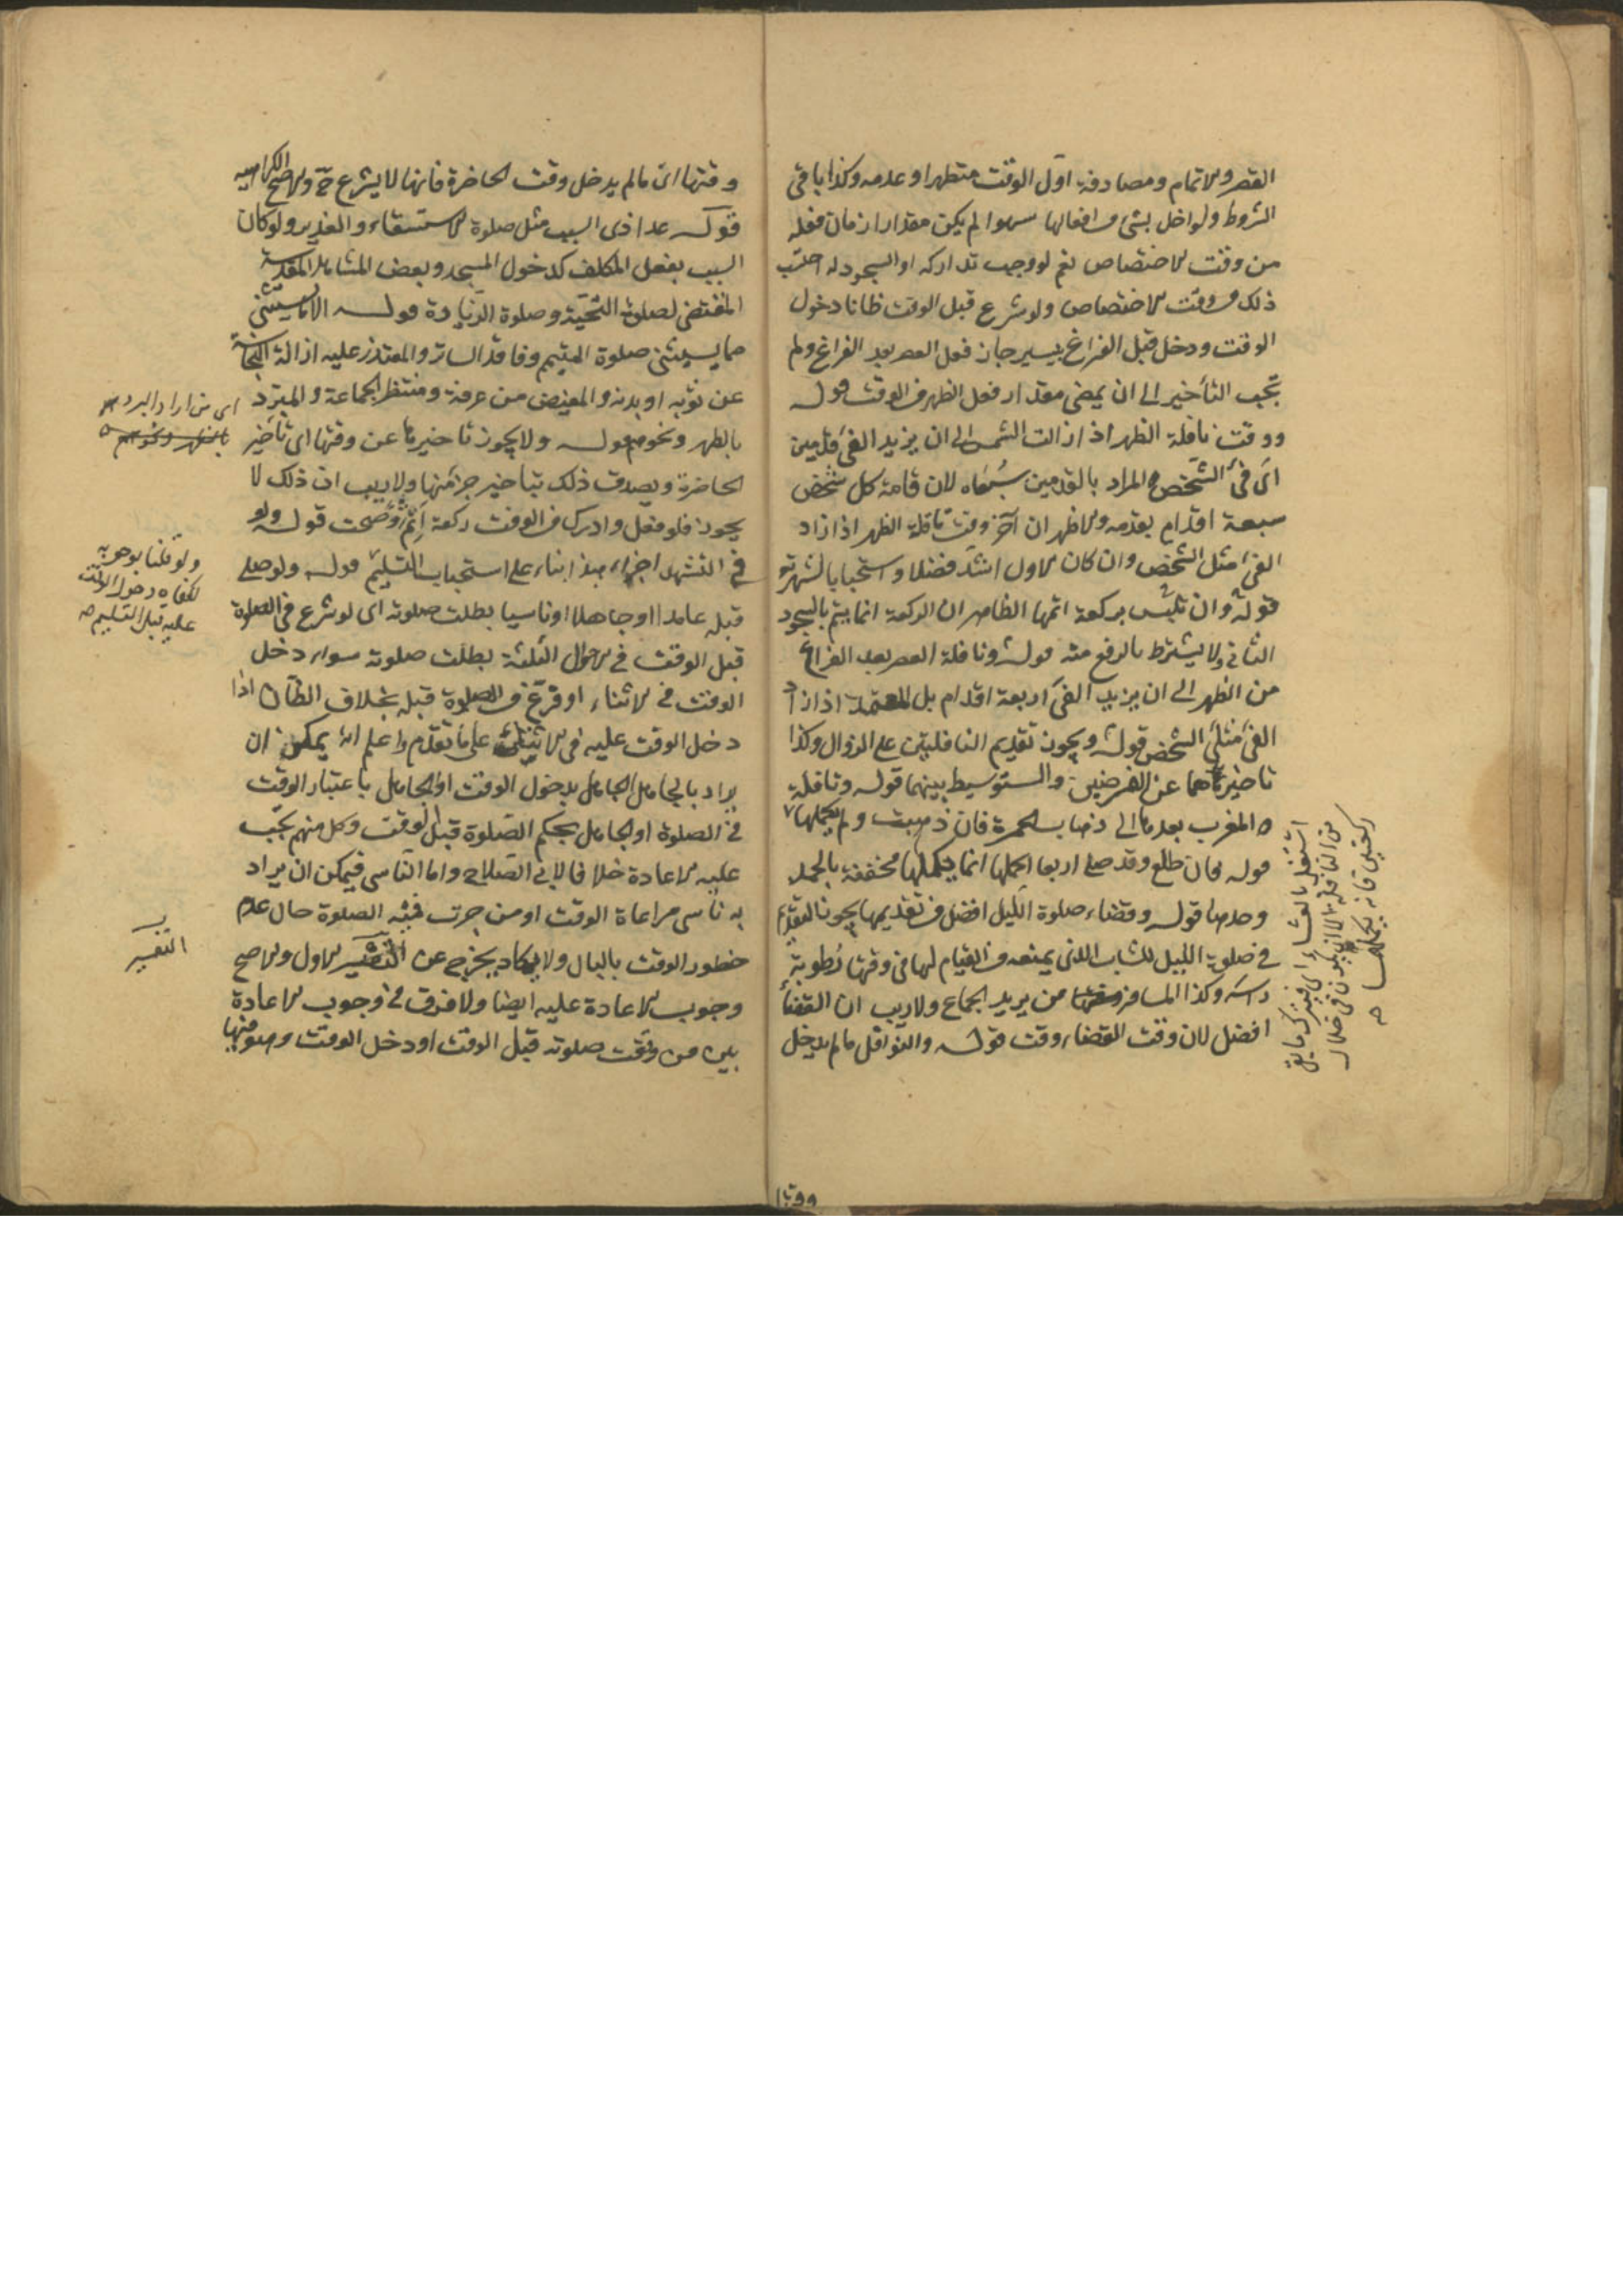 القصر والاتمام ومصادفة اول الوقت متطهرا او عدمه وكذا باقي
الشروط ولو اخل بشئ من افعالها سهوا لم يكن مقدار ازمان فعله
من وقت الاختصاص نعم لو وجب تداركه او السجود له احتسب
ذلك من وقت الاختصاص ولو شرع قبل الوقت ظانا دخول
الوقت ودخل قبل الفراغ بيسير جاز فعل العصر بعد الفراغ ولم
يجب التأخير الى ان يمضي مقدار فعل الظهر في الوقت قوله
ووقت نافلة الظهر اذا زالت الشمس الى ان يزيد الفئ قدمين
اى فئ الشخص والمراد بالقدمين سبعاه لان قامة كل شخص
سبعة اقدام بقدمه والاظهر ان آخر وقت نافلة الظهر اذا زاد
الفئ مثل الشخص وان كان الاول اشد فضلا واستحبابا لشهرته
قوله وان تلبس بركعة اتمها الظاهر ان الركعة انما يتم بالسجود
الثاني ولا يشترط الرفع منه قوله ونافلة العصر بعد الفراغ
من الظهر الى ان يزيد الفئ اربعة اقدام بل المعتمد اذا زاد
الفئ مثلي الشخص قوله ويجوز تقديم النافلتين على الزوال وكذا
تاخيرهما عن الفرضين والتوسيط بينهما قوله ونافلة
المغرب بعدها الى ذهاب الحمرة فان ذهبت ولم يكملها
قوله فان طلع وقد صلى اربعا اكملها انما يكملها مخففة بالحمد
وحدها قوله وقضاء صلوة الليل افضل من تقديمها يجوز التقديم
في صلوة الليل للشاب الذي يمنعه من القيام لها في وقتها رطوبة
راسه وكذا المسافر من يريد الجماع ولا ريب ان القضاء
افضل لان وقت القضاء وقت قوله والنوافل ما لم يدخل
اشتغل بالعشاء اى فيترك ما بقي
من النافلة الا ان يكون في خلال
ركعتين فانه يكملهما
وقتها
وقتها اى ما لم يدخل وقت الحاضرة فانها لا يشرع ح والاصح الكراهية
قوله عدا ذى السبب مثل صلوة الاستسقاء والغدير ولو كان
السبب بفعل المكلف كدخول المسجد وبعض المشاهد المقدسة
المقتضى لصلوة التحية وصلوة الزيارة قوله الا ما يستثنى
مما يستثنى صلوة المتيمم وفاقد الساتر والمعتذر عليه ازالة النجاسة
عن ثوبه او بدنه والمفيض من عرفة ومنتظر الجماعة والمبرد
بالظهر ونحوهم قوله ولا يجوز تاخيرها عن وقتها اى تأخير
الحاضرة ويصدق ذلك بتاخير جزئها ولا ريب ان ذلك لا
يجوز فلو فعل وادرك من الوقت ركعة اثم وصحت قوله ولو
في التشهد اجزاء هذا بناء على استحباب التسليم قوله ولو صلى
قبله عامدا او جاهلا او ناسيا بطلت صلوته اى لو شرع في الصلوة
قبل الوقت في الاحوال الثلثة بطلت صلوته سواء دخل
الوقت في الاثناء او فرغ من الصلوة قبله بخلاف الظان اذا
دخل الوقت عليه في الاثناء على ما تقدم واعلم انه يمكن ان
يراد بالجاهل الجاهل بدخول الوقت او الجاهل باعتبار الوقت
في الصلوة او الجاهل بحكم الصلوة قبل الوقت وكل منهم يجب
عليه الاعادة خلافا لابى الصلاح واما الناسى فيمكن ان يراد
به ناسى مراعاة الوقت او من جرت فيه الصلوة حال عدم
خطور الوقت بالبال ولا يكاد يخرج عن التفسير الاول والاصح
وجوب الاعادة عليه ايضا ولا فرق في وجوب الاعادة
بين من وقعت صلوته قبل الوقت او دخل الوقت وهو فيها
اى من اراد البرد
بالظهر ونحوهم
ولو قلنا بوجوبه
لكفاه دخول الوقت
عليه قبل التسليم
التفسير